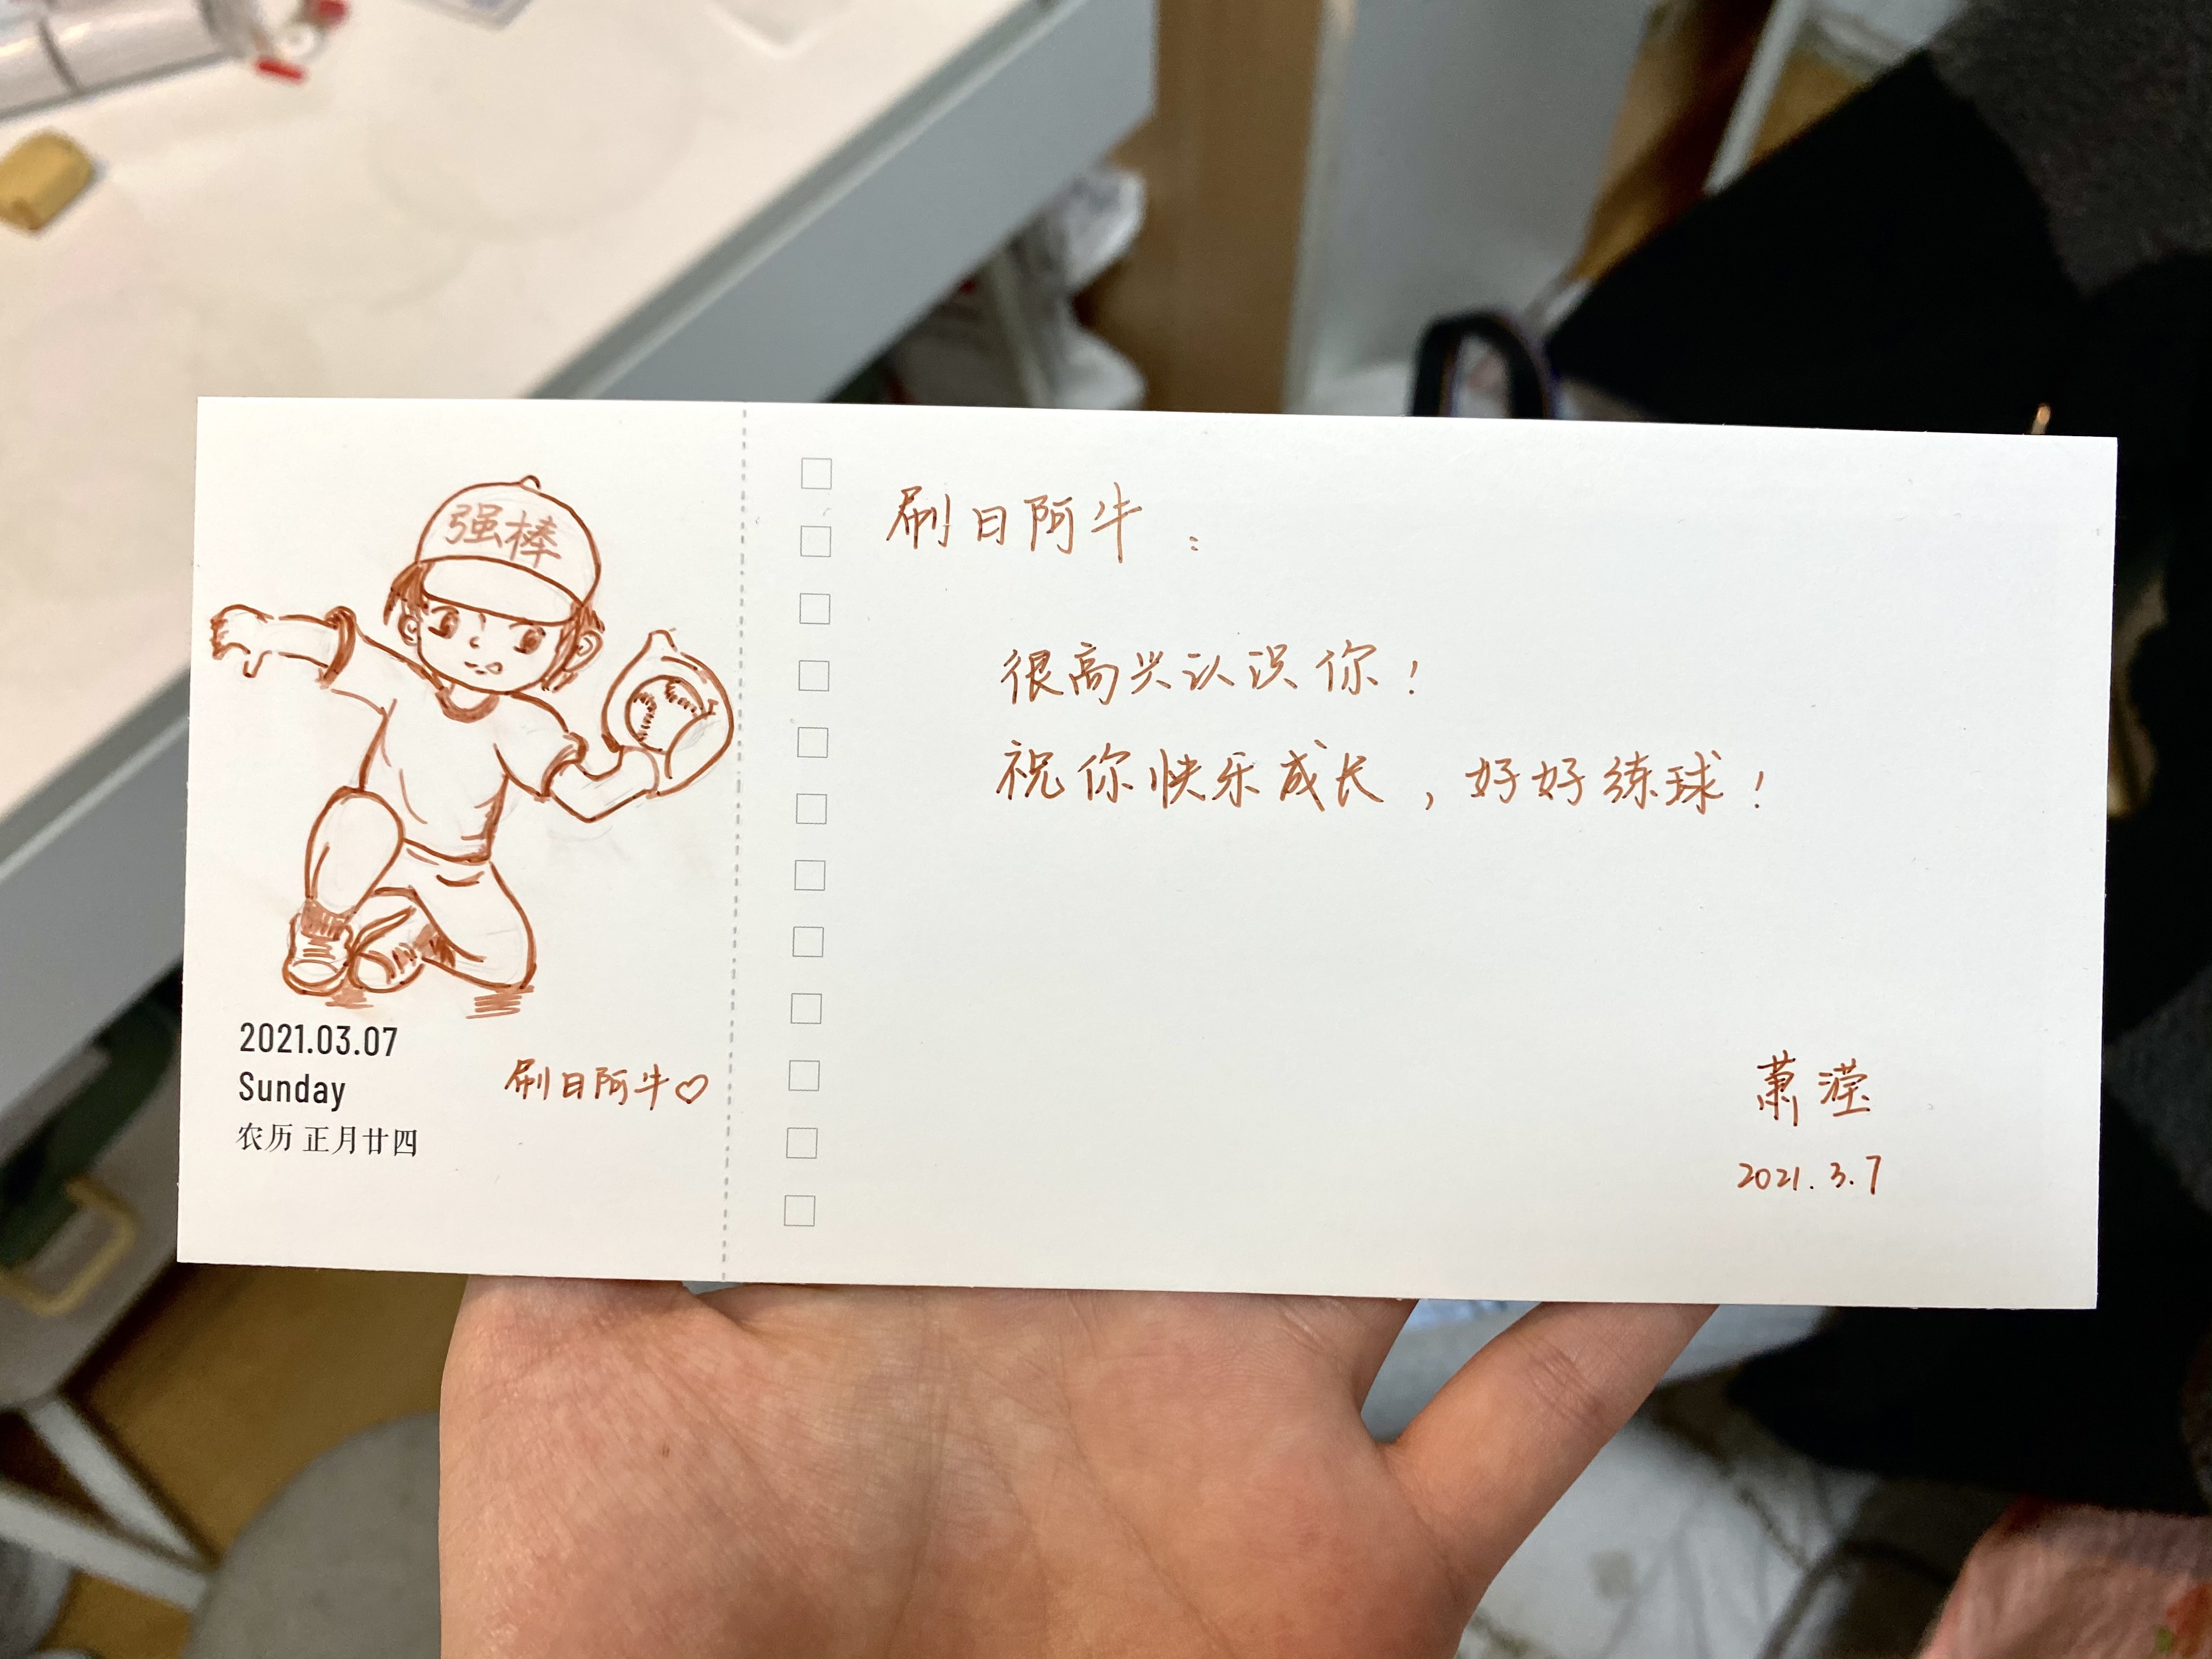 强棒
2021.03.07
Sunday
农历 正月廿四
刷日阿牛♡
刷日阿牛：
很高兴认识你！
祝你快乐成长，好好练球！
萧滢
2021.3.7